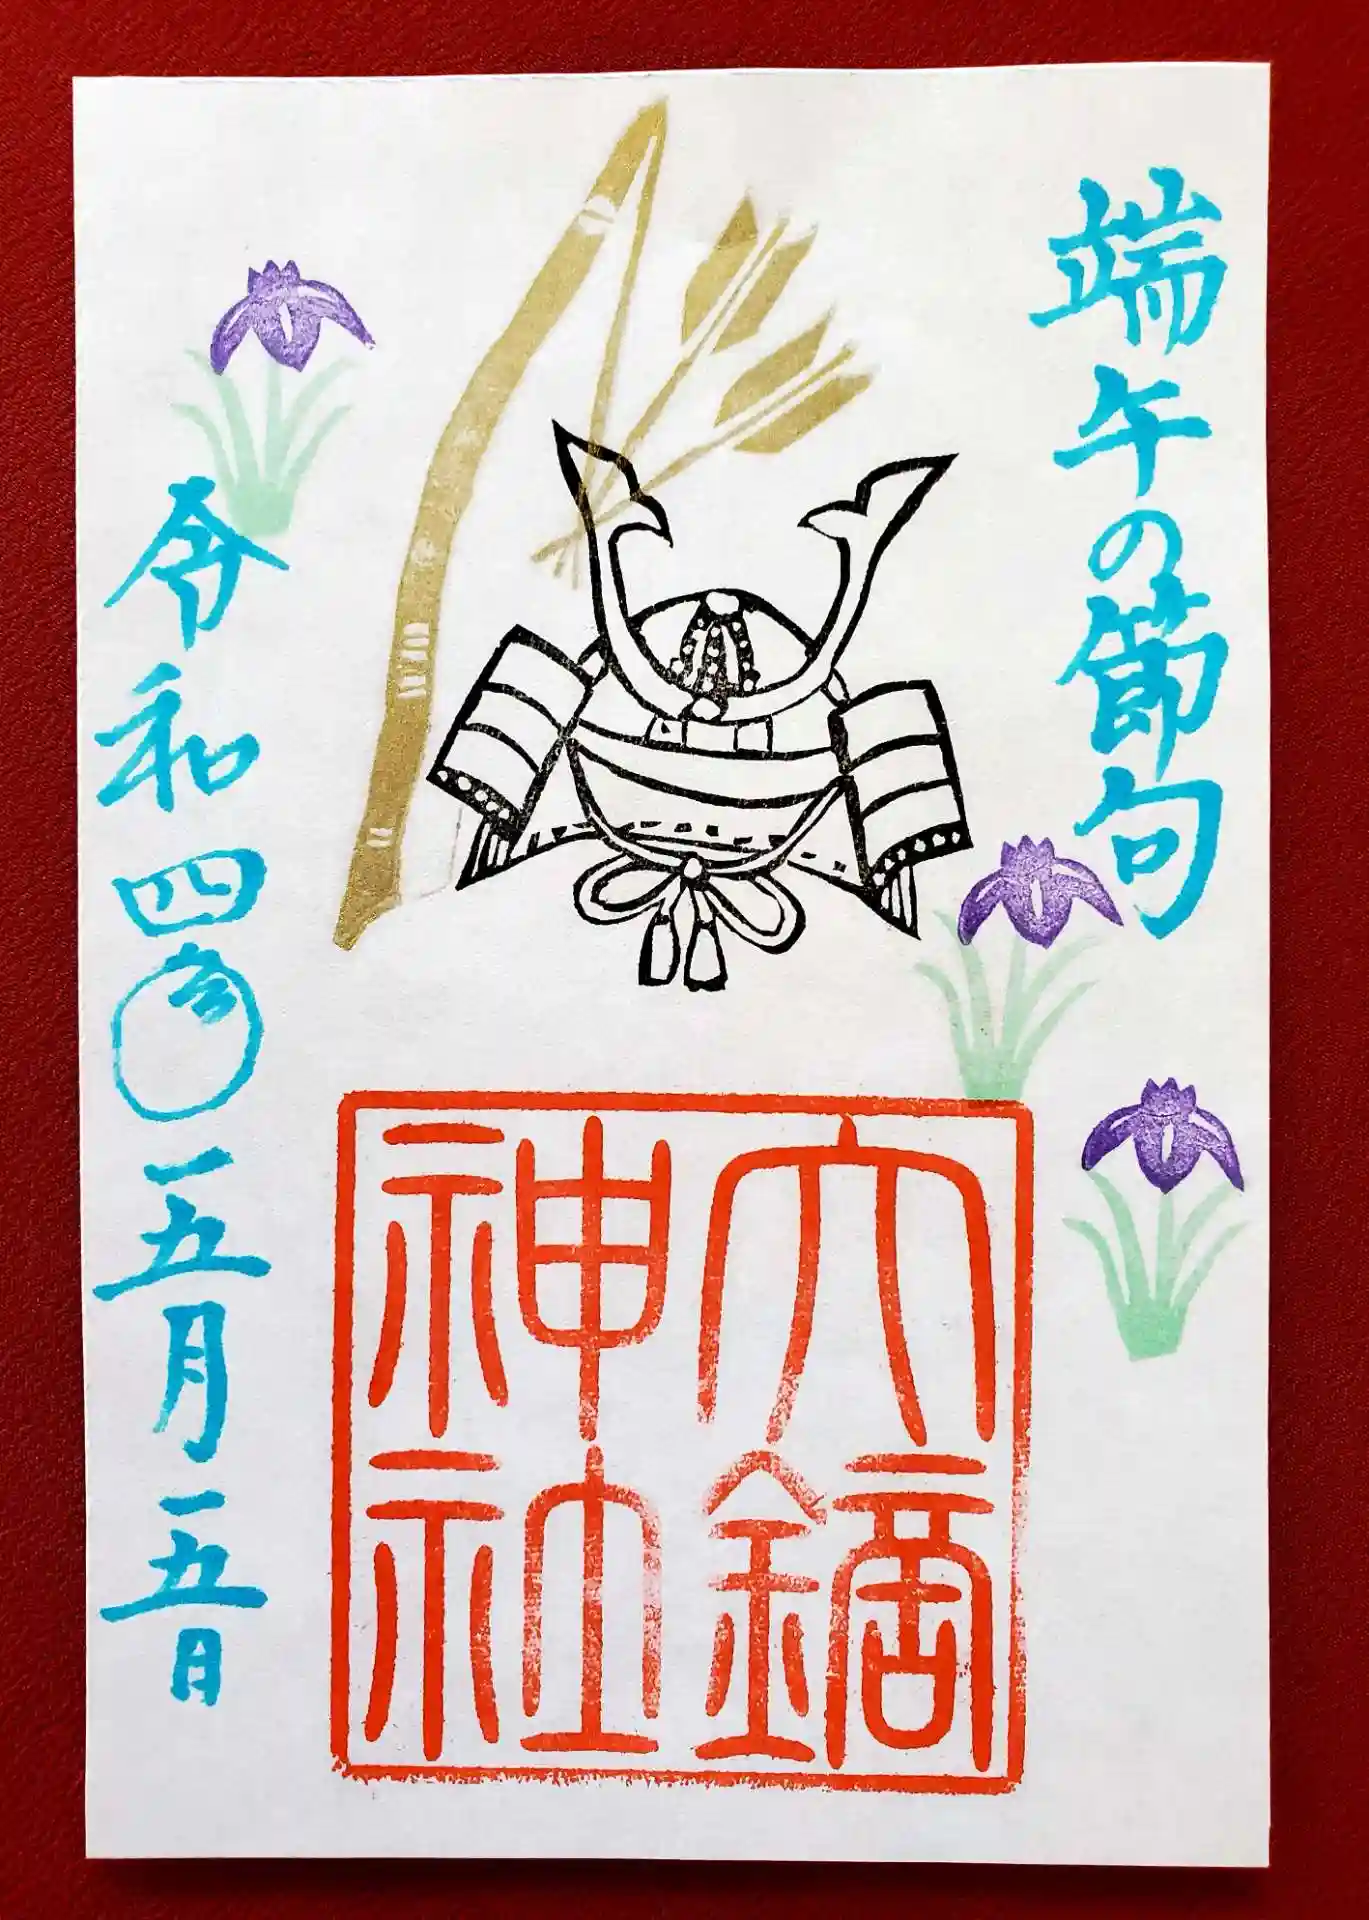 端午の節句
大鏑
神社
令和四 五月五日